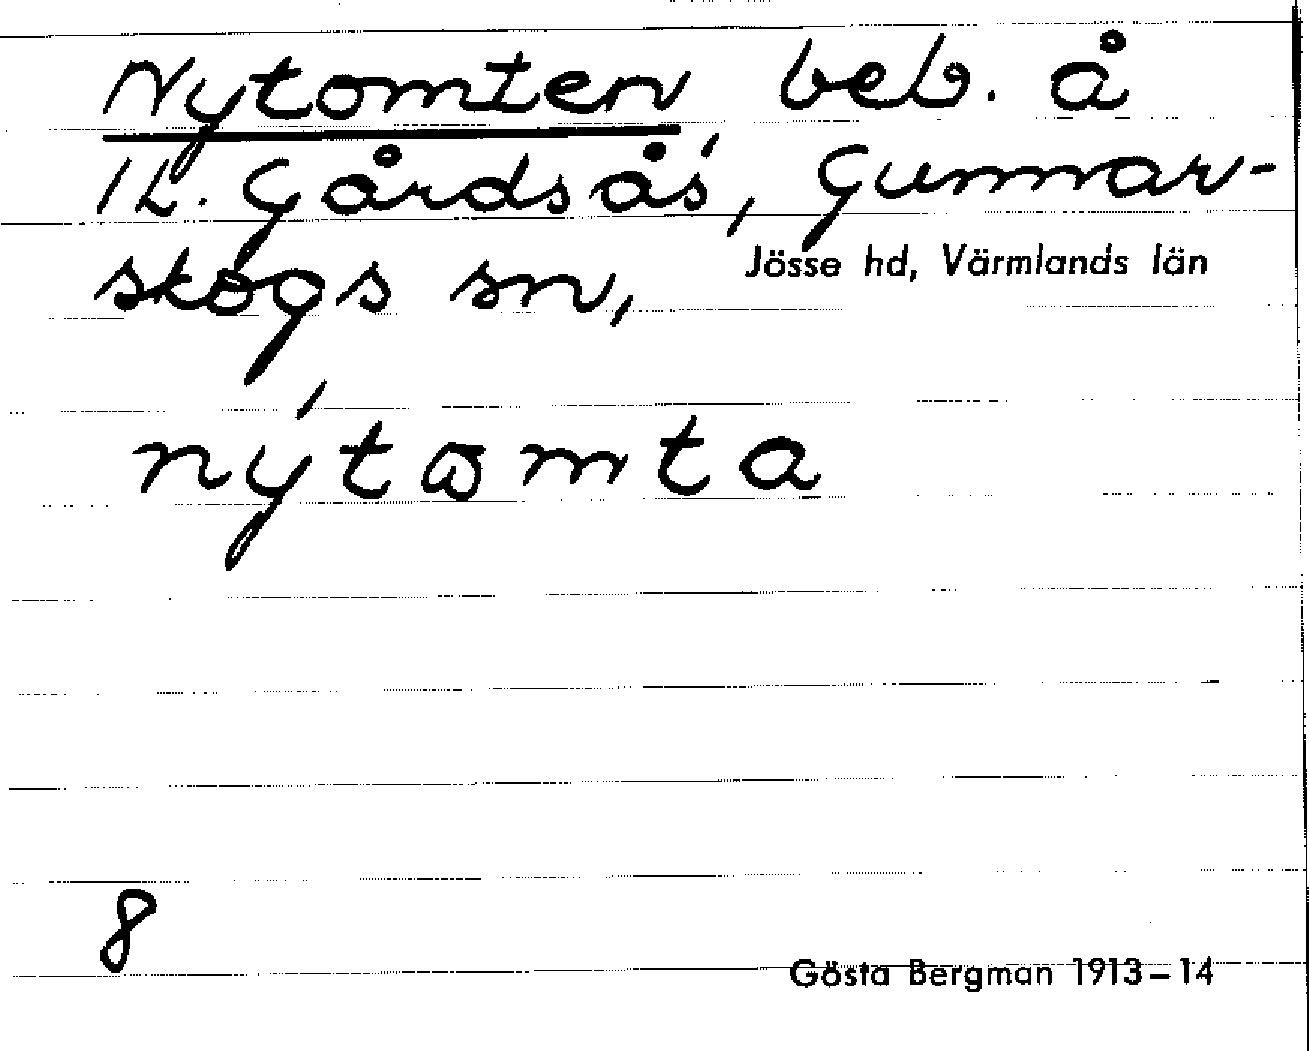 Nytomten beb. å
12. Gårdsås, Gunnar-
skogs sn, Jösse hd, Värmlands län
nýtωmta
8
Gösta Bergman 1913–14